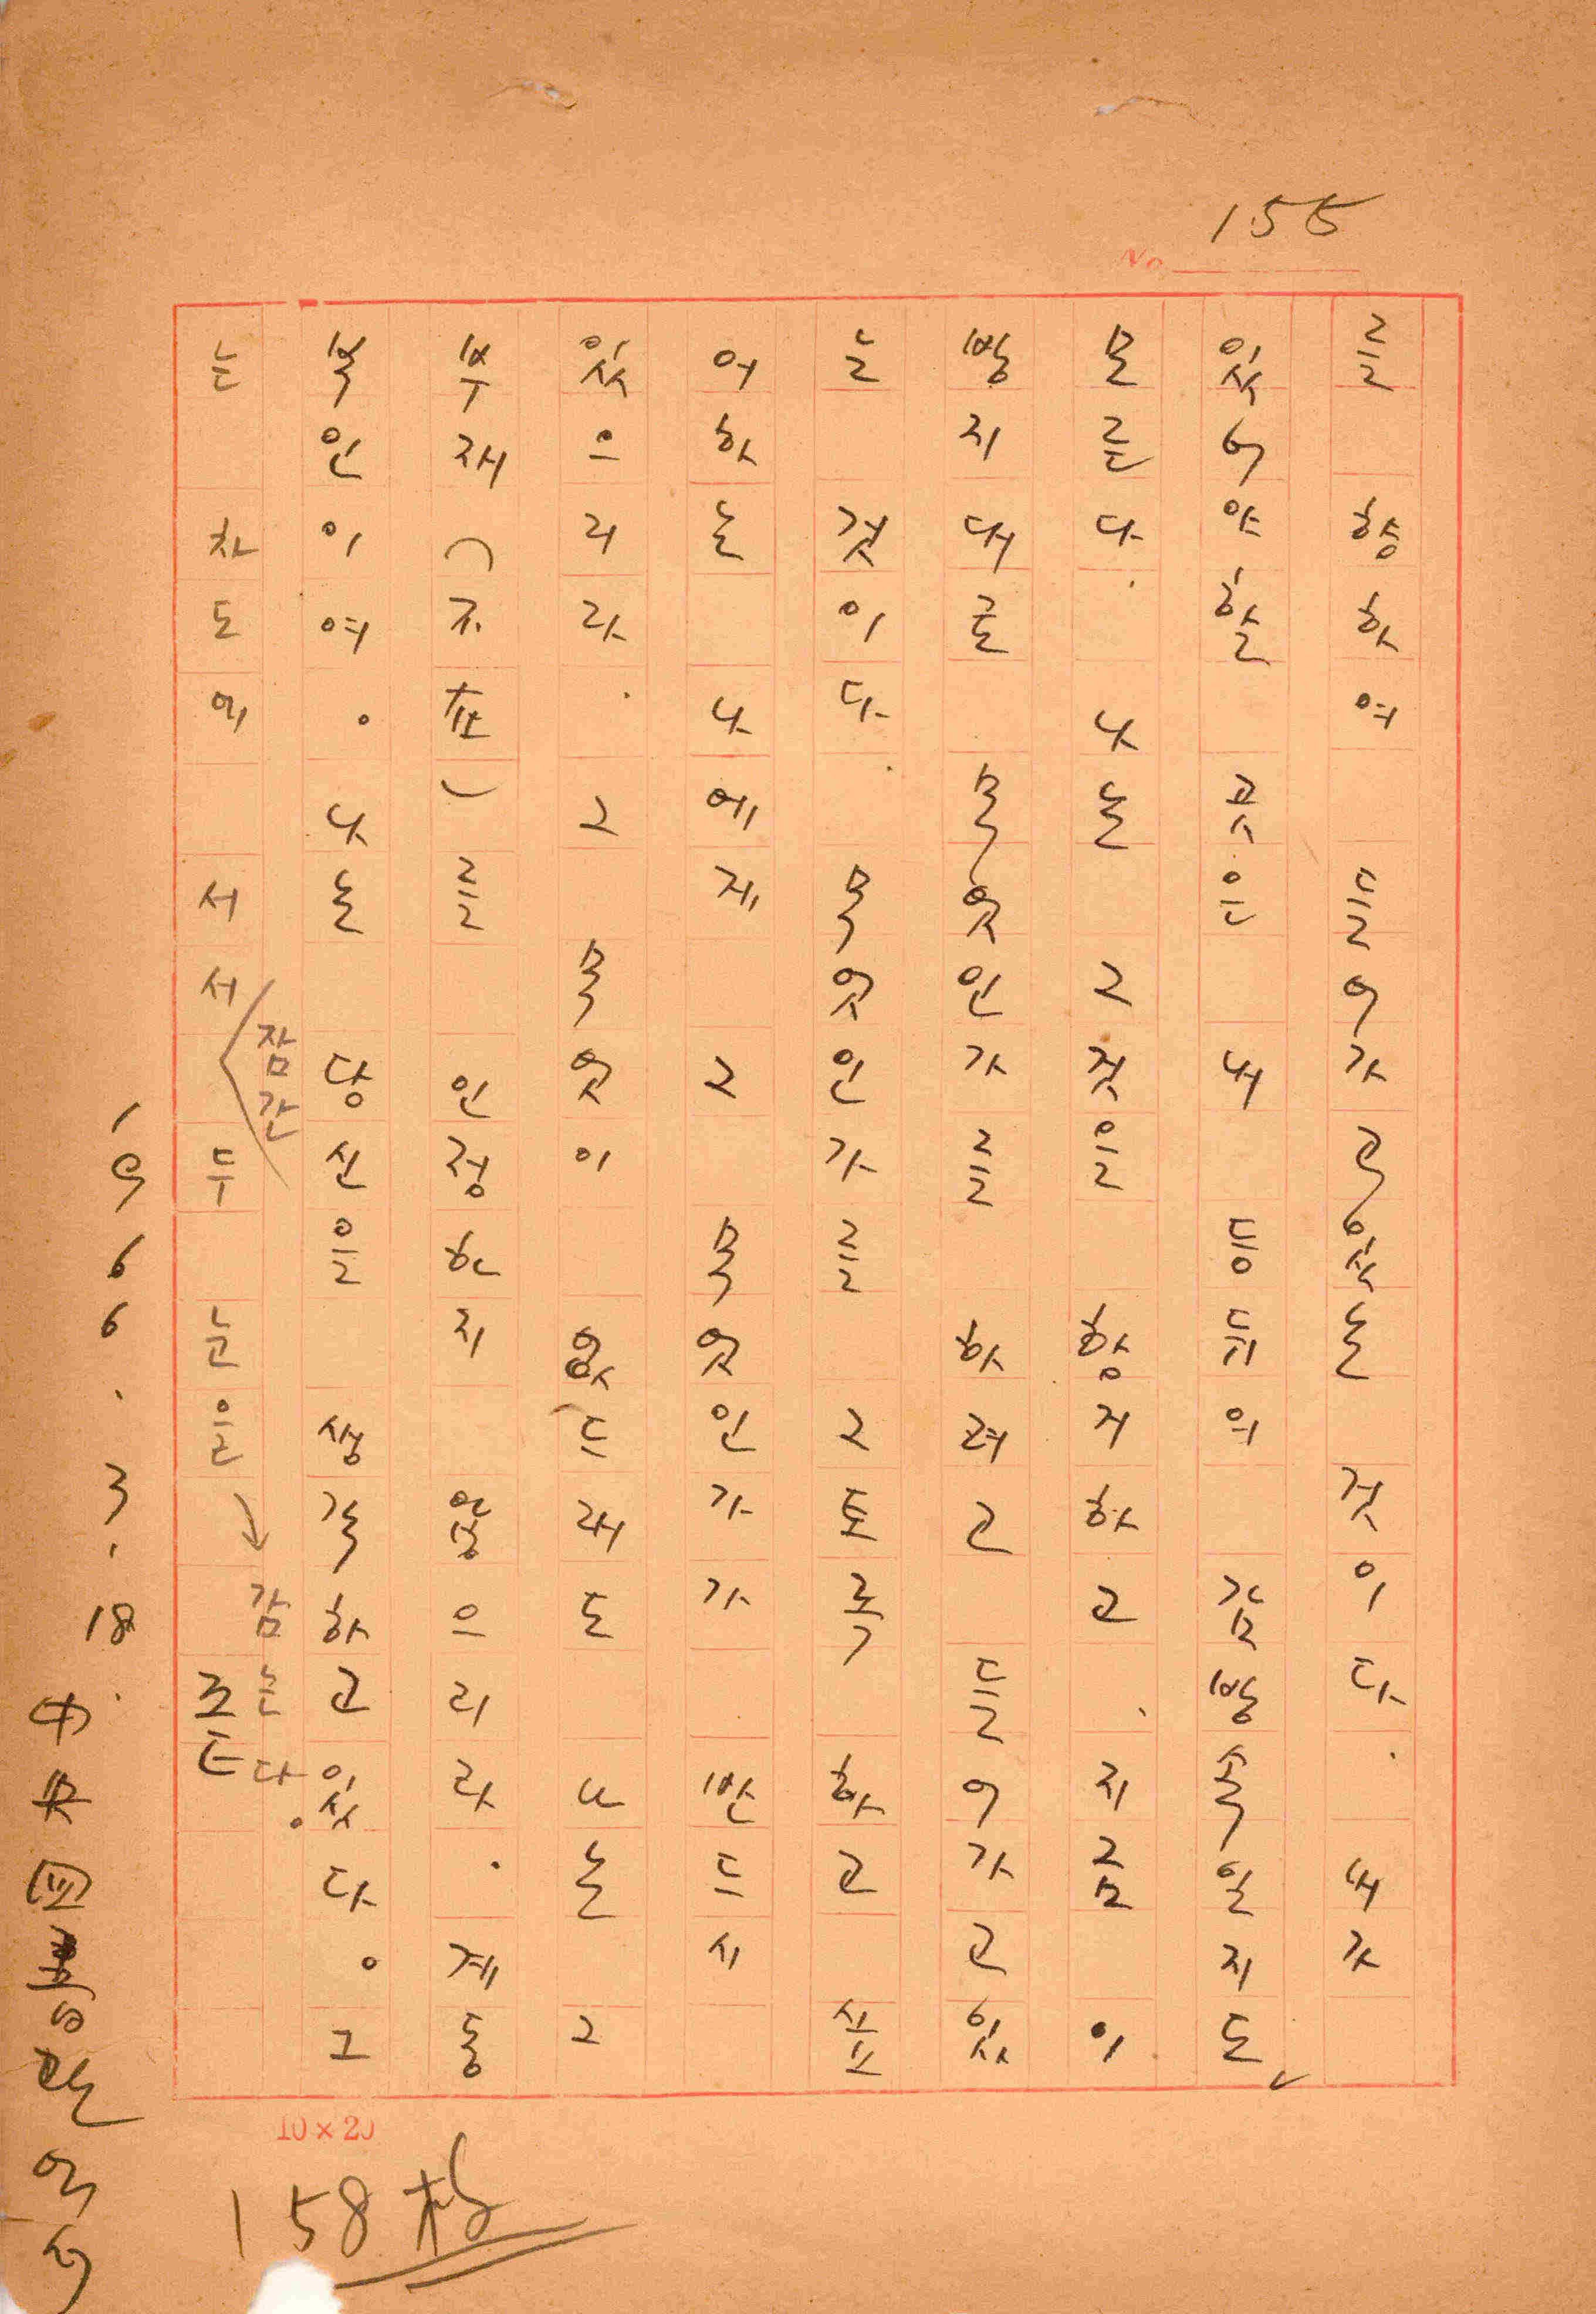 155
No.
를 향하여 들어가고있는 것이다. 내가
있어야할 곳은 내 등뒤의 감방속일지도
모른다. 나는 그것을 항거하고, 지금 이
방지대로 무엇인가를 하려고 들어가고있
는 것이다. 무엇인가를 그토록 하고 싶
어하는 나에게 그 무엇인가가 반드시
있으리라. 그 무엇이 없드래도 나는 그
부재(不在)를 인정하지 않으리라. 계동
복인이여. 나는 당신을 생각하고있다. 그
는 차도에 서서 잠간 두 눈을 감는다.
1966.3.18.
中央図
10×20
158枚